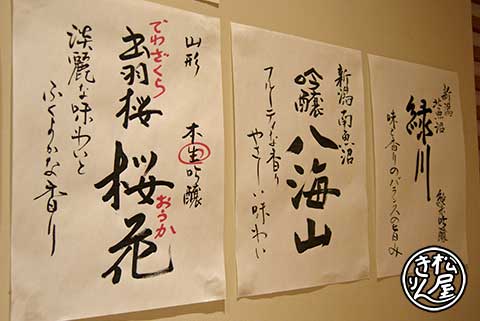 山形
でわざくら
出羽桜
本生吟醸
桜花
おうか
淡麗な味わいと
ふくよかな香り
新潟南魚沼
吟醸
八海山
フルーティな香り
やさしい味わい
新潟
北魚沼
緑川
純米吟醸
味と香りのバランスの旨み
松屋
きりん